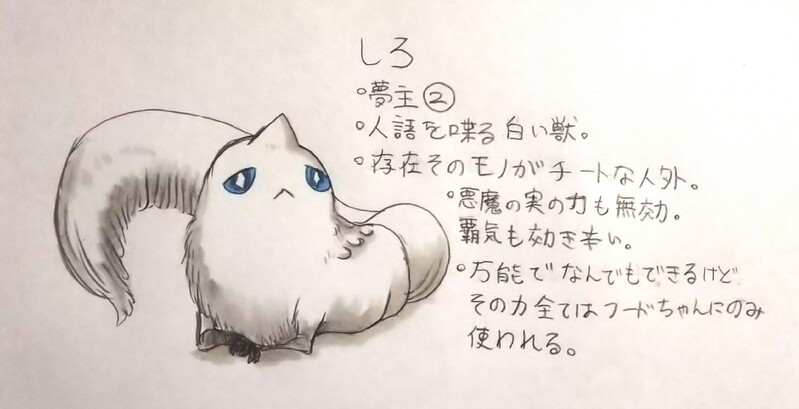 しろ
°夢主②
°人語を喋る白い獣。
°存在そのモノがチートな人外。
°悪魔の実の力も無効。
覇気も効き辛い。
°万能でなんでもできるけど
その力全てはフードちゃんにのみ
使われる。